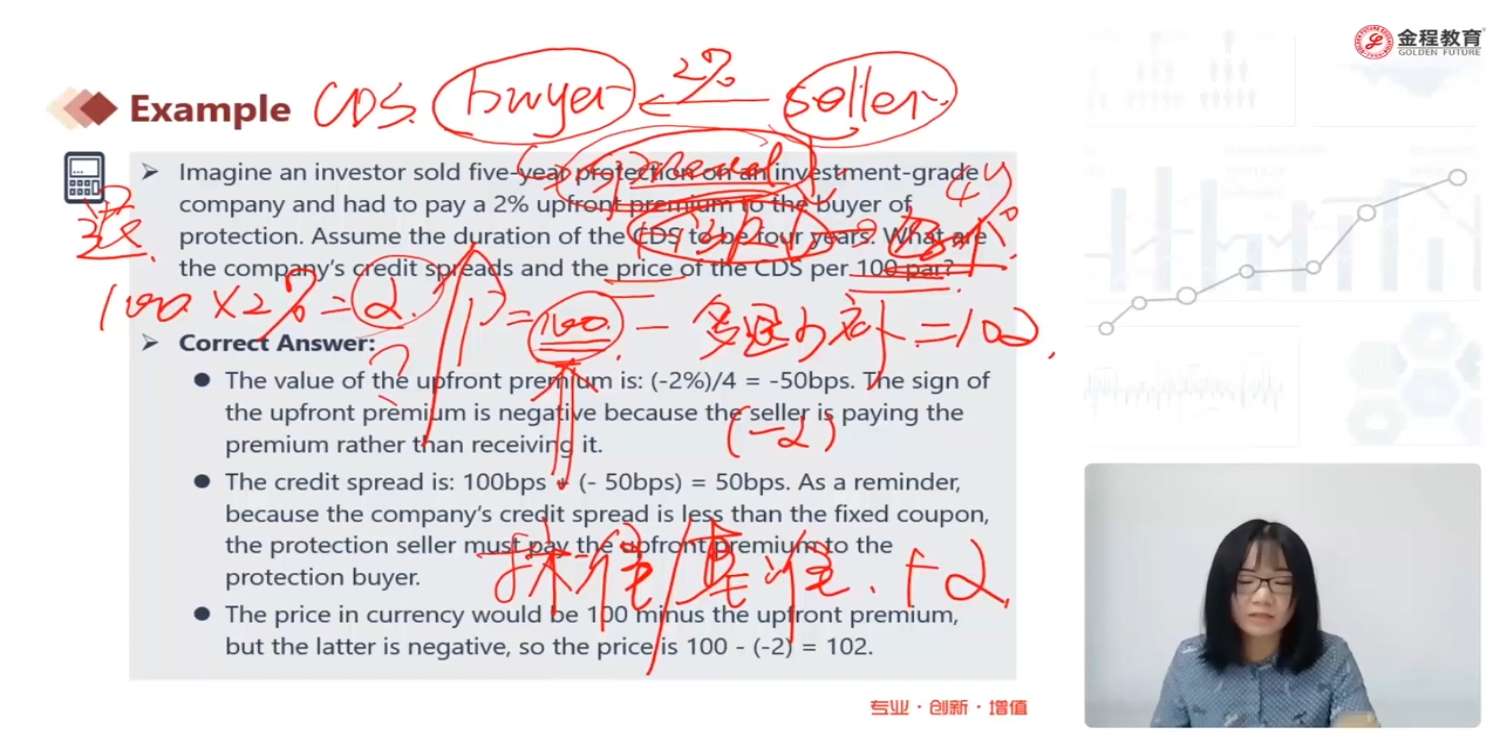 金程教育
GOLDEN FUTURE
Example CDS. buyer ← 2% seller.
Imagine an investor sold five-year protection on an investment-grade
company and had to pay a 2% upfront premium to the buyer of
protection. Assume the duration of the CDS to be four years. What are
the company's credit spreads and the price of the CDS per 100 par?
退.
4y
100 × 2% = 2.
P = 100. - 多退少补 = 102.
Correct Answer:
The value of the upfront premium is: (-2%)/4 = -50bps. The sign of
the upfront premium is negative because the seller is paying the
premium rather than receiving it.
(-2)
The credit spread is: 100bps + (- 50bps) = 50bps. As a reminder,
because the company's credit spread is less than the fixed coupon,
the protection seller must pay the upfront premium to the
protection buyer.
标准/基准. +2.
The price in currency would be 100 minus the upfront premium,
but the latter is negative, so the price is 100 - (-2) = 102.
专业·创新·增值